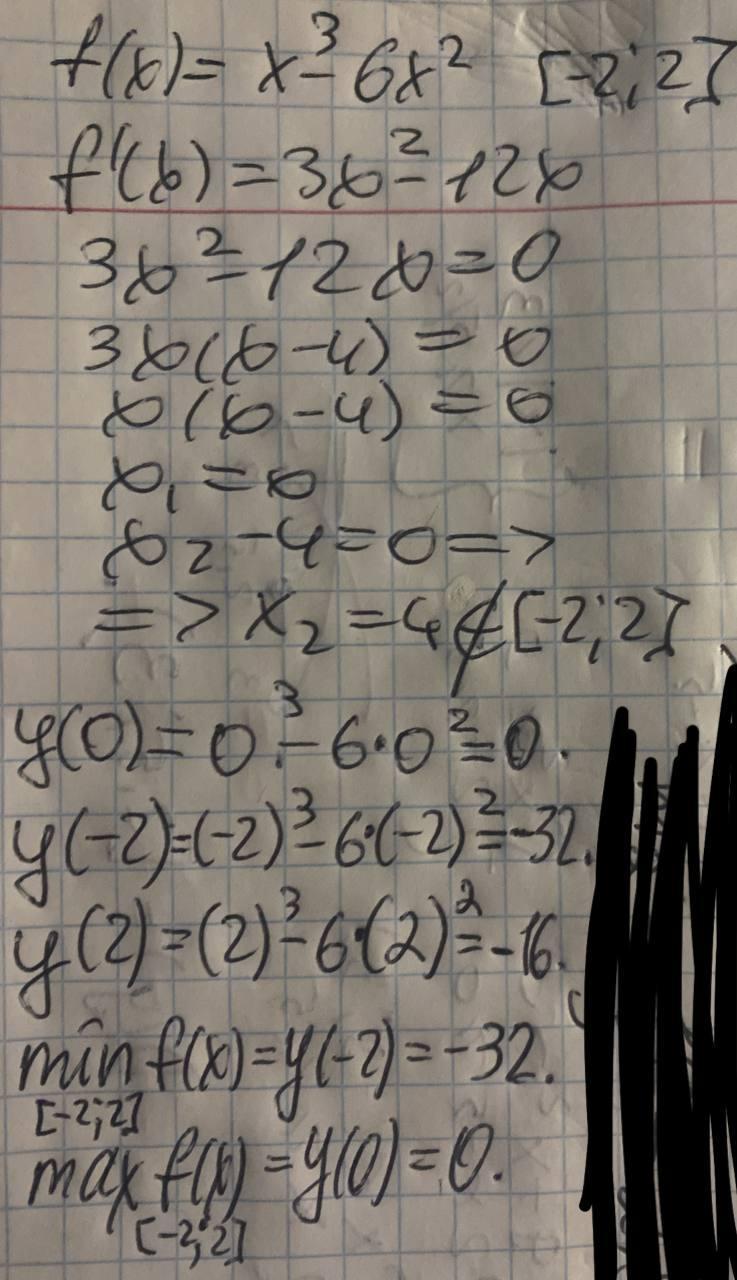 f(x) = x³ - 6x² [-2; 2]
f'(x) = 3x² - 12x
3x² - 12x = 0
3x(x - 4) = 0
x(x - 4) = 0
x₁ = 0
x₂ - 4 = 0 =>
=> x₂ = 4 ∉ [-2; 2]
y(0) = 0³ - 6·0² = 0.
y(-2) = (-2)³ - 6·(-2)² = -32.
y(2) = (2)³ - 6·(2)² = -16.
min f(x) = y(-2) = -32.
[-2; 2]
max f(x) = y(0) = 0.
[-2; 2]